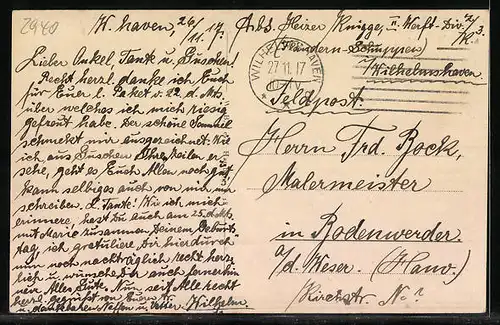 2940
W. haven, 26/11.17.
Abs. Heizer Knigge, II. Werft-Div. 2/K 3.
Flandern-Schuppen
Wilhelmshaven.
WILHELMSHAVEN
27.11.17
Feldpost.
Lieber Onkel, Tante u. Guschen!
Recht herzl. danke ich Euch
für Euer l. Paket v. 22. d. Mts.
über welches ich mich riesig
gefreut habe. Der schöne
schmeckt mir ausgezeichnet. Wie
ich aus Guschen Ihre Zeilen er-
sehe, geht es Euch Allen noch gut,
kann selbiges auch von mir nur
schreiben. L. Tante! Wie ich mich
erinnere, hast Du auch am 25. d. Mts.
mit Marie zusammen Deinen Geburts-
tag, ich gratuliere Dir hierdurch
nun noch nachträglich recht herz-
lich u. wünsche Dir auch fernerhin
nur Alles Gute. Nun seid Alle recht
herzl. gegrüßt von Eurem
dankbaren Neffen u. Vetter Wilhelm.
Herrn Frd. Bock,
Malermeister
in Bodenwerder.
a/d. Weser. (Hann.)
Kirchstr. No ?